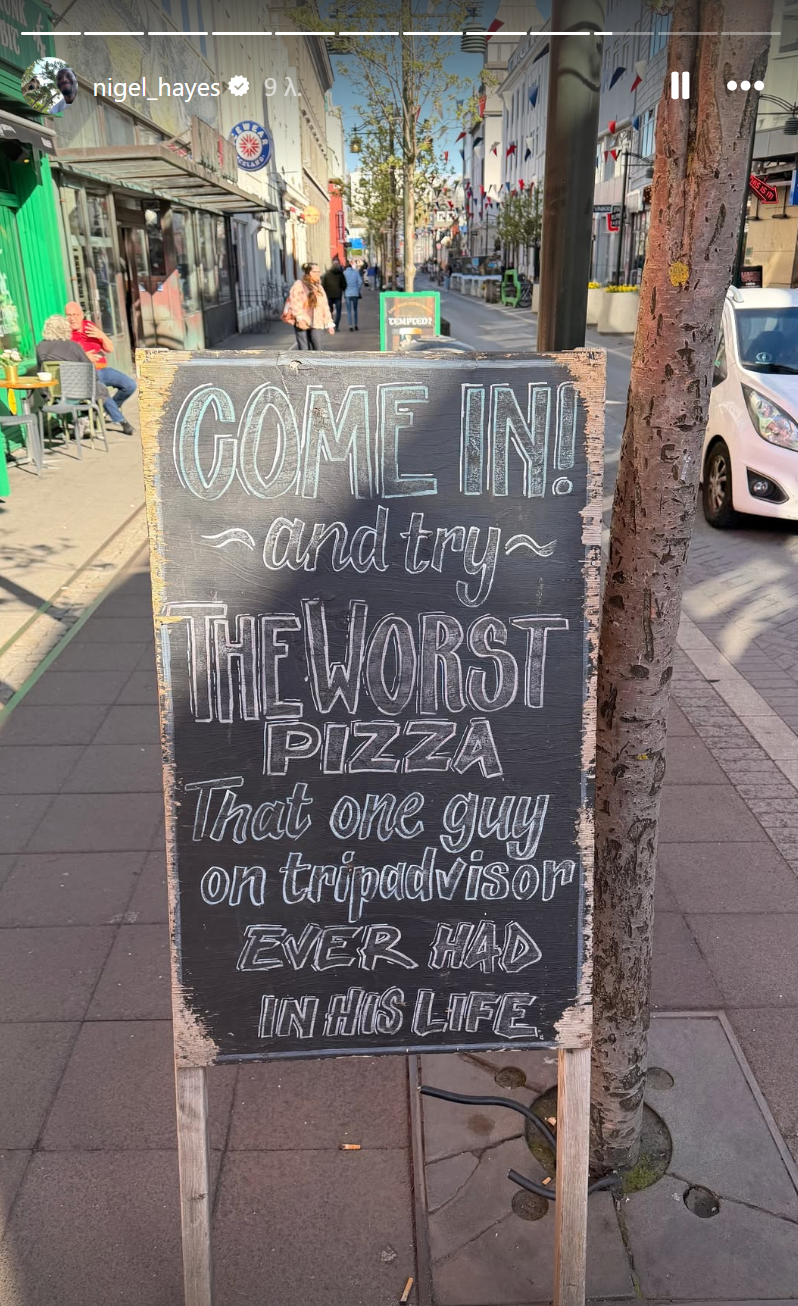 nigel_hayes 9 λ.
TEMPTED?
COME IN!
~and try~
THE WORST
PIZZA
That one guy
on tripadvisor
EVER HAD
IN HIS LIFE